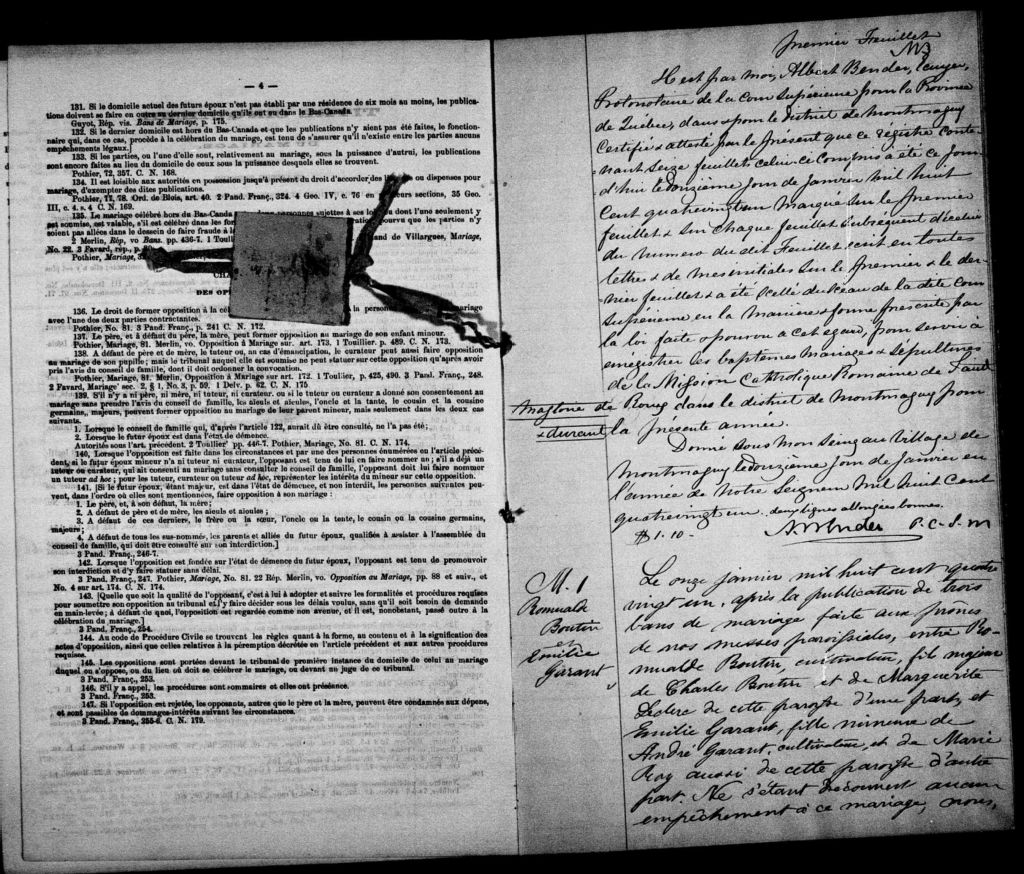 — 4 —
131. Si le domicile actuel des futurs époux n'est pas établi par une résidence de six mois au moins, les publica-
tions doivent se faire en outre au dernier domicile qu'ils ont eu dans le Bas-Canada.
Guyot, Rép. vis. Bans de Mariage, p. 175.
132. Si le dernier domicile est hors du Bas-Canada et que les publications n'y aient pas été faites, le fonction-
naire qui, dans ce cas, procède à la célébration du mariage, est tenu de s'assurer qu'il n'existe entre les parties aucuns
empêchements légaux.]
133. Si les parties, ou l'une d'elle sont, relativement au mariage, sous la puissance d'autrui, les publications
sont encore faites au lieu du domicile de ceux sous la puissance desquels elles se trouvent.
Pothier, 72, 357. C. N. 168.
134. Il est loisible aux autorités en possession jusqu'à présent du droit d'accorder des ou dispenses pour
mariage, d'exempter des dites publications.
Pothier, 78. Ord. de Blois, art. 40. 2 Pand. Franç., 324. 4 Geo. IV, c. 76 en sections, 35 Geo.
III, c. 4. s. 4 C. N. 169.
135. Le mariage célébré hors du Bas-Canada personnes sujettes à ses dont l'une seulement y
est soumise, est valable, s'il est célébré dans les pourvu que les parties n'y
soient pas allées dans le dessein de faire fraude à
2 Merlin, Rép, vo Bans. pp. 436-7. 1 de Villargues, Mariage,
No. 22. 3 Favard, rép., p.
Pothier, Mariage,
DES
136. Le droit de former opposition à la la personne mariage
avec l'une des deux parties contractantes.
Pothier, No. 81. 3 Pand. Franç., p. 241 C. N. 172.
137. Le père, et à défaut du père, la mère, peut former opposition au mariage de son enfant mineur.
Pothier, Mariage, 81. Merlin, vo. Opposition à Mariage sur. art. 173. 1 Touillier. p. 489. C. N. 173.
138. A défaut de père et de mère, le tuteur ou, en cas d'émancipation, le curateur peut aussi faire opposition
au mariage de son pupille; mais le tribunal auquel elle est soumise ne peut statuer sur cette opposition qu'après avoir
pris l'avis du conseil de famille, dont il doit ordonner la convocation.
Pothier, Mariage, 81. Merlin, Opposition à Mariage sur art. 173. 1 Toullier, p. 425, 490. 3 Pand. Franç., 248.
2 Favard, Mariage sec. 2, § 1, No. 3, p. 59. 1 Delv. p. 62. C. N. 175.
139. S'il n'y a ni père, ni mère, ni tuteur, ni curateur. ou si le tuteur ou curateur a donné son consentement au
mariage sans prendre l'avis du conseil de famille, les aïeuls et aïeules, l'oncle et la tante, le cousin et la cousine
germains, majeurs, peuvent former opposition au mariage de leur parent mineur, mais seulement dans les deux cas
suivants.
1. Lorsque le conseil de famille qui, d'après l'article 122, aurait dû être consulté, ne l'a pas été;
2. Lorsque le futur époux est dans l'état de démence.
Autorités sous l'art. précédent. 2 Touillier pp. 446-7. Pothier, Mariage, No. 81. C. N. 174.
140. Lorsque l'opposition est faite dans les circonstances et par une des personnes énumérées en l'article précé-
dent, si le futur époux mineur n'a ni tuteur ni curateur, l'opposant est tenu de lui en faire nommer un; s'il a déjà un
tuteur ou curateur, qui ait consenti au mariage sans consulter le conseil de famille, l'opposant doit lui faire nommer
un tuteur ad hoc; pour les tuteur, curateur ou tuteur ad hoc, représenter les intérêts du mineur sur cette opposition.
141. [Si le futur époux, étant majeur, est dans l'état de démence, et non interdit, les personnes suivantes peu-
vent, dans l'ordre où elles sont mentionnées, faire opposition à son mariage:
1. Le père, et, à son défaut, la mère;
2. A défaut de père et de mère, les aïeuls et aïeules;
3. A défaut de ces derniers, le frère ou la sœur, l'oncle ou la tente, le cousin ou la cousine germains,
majeurs;
4. A défaut de tous les sus-nommés, les parents et alliés du futur époux, qualifiés à assister à l'assemblée du
conseil de famille, qui doit être consulté sur son interdiction.]
3 Pand. Franç., 246-7.
142. Lorsque l'opposition est fondée sur l'état de démence du futur époux, l'opposant est tenu de promouvoir
son interdiction et d'y faire statuer sans délai.
3 Pand. Franç., 247. Pothier, Mariage, No. 81. 22 Rép. Merlin, vo. Opposition au Mariage, pp. 88 et suiv., et
No. 4 sur art. 174. C. N. 174.
143. [Quelle que soit la qualité de l'opposant, c'est à lui à adopter et suivre les formalités et procédures requises
pour soumettre son opposition au tribunal et l'y faire décider sous les délais voulus, sans qu'il soit besoin de demande
en main-levée; à défaut de quoi, l'opposition est regardée comme non avenue, et il est, nonobstant, passé outre à la
célébration du mariage.]
3 Pand. Franç., 254.
144. Au code de Procédure Civile se trouvent les règles quant à la forme, au contenu et à la signification des
actes d'opposition, ainsi que celles relatives à la péremption décrétée en l'article précédent et aux autres procédures
requises.
145. Les oppositions sont portées devant le tribunal de première instance du domicile de celui au mariage
duquel on s'oppose, ou du lieu où doit se célébrer le mariage, ou devant un juge de ce tribunal.
3 Pand. Franç., 253.
146. S'il y a appel, les procédures sont sommaires et elles ont préséance.
3 Pand. Franç., 253.
147. Si l'opposition est rejetée, les opposants, autres que le père et la mère, peuvent être condamnés aux dépens,
et sont passibles de dommages-intérêts suivant les circonstances.
3 Pand. Franç., 255-6. C. N. 179.
premier Feuillet
Il est par moi, Albert Bender, Ecuyer,
Protonotaire de la cour supérieure pour la Province
de Québec, dans & pour le District de Montmagny
Certifié & attesté par le présent que ce régistre conte-
nant seize feuillets celui-ce compris a été ce jour
d'hui le douzième jour de janvier mil huit
cent quatrevingt un marqué sur le premier
feuillet & sur chaque feuillet subsequent d'icelui
du numero du dit Feuillet écrit en toutes
lettres & de mes initiales sur le premier & le der-
nier feuillet & a été scellé du sceau de la dite cour
supérieure en la manière & forme prescrite par
la loi faite & pourvue a cet égard, pour servir à
enregistrer les baptemes mariages & sépultures
de la Mission Catholique Romaine de Saint
Magloire de Roux dans le district de Montmagny pour
& durant la présente année.
Donné sous mon seing au village de
Montmagny le douzième jour de janvier en
l'année de Notre Seigneur mil huit cent
quatrevingt un. deux lignes allongées bonnes.
$1.10- A Bender P. C. S. M
M. 1
Romuald
Boutin
Emilie
Garant
Le onze janvier mil huit cent quatre
vingt un, après la publication de trois
bans de mariage faite aux prônes
de nos messes paroissiales, entre Ro-
muald Boutin, cultivateur, fils majeur
de Charles Boutin et de Marguerite
Leclerc de cette paroisse d'une part, et
Emilie Garant, fille mineure de
André Garant, cultivateur, et de Marie
Roy aussi de cette paroisse d'autre
part. Ne s'étant découvert aucun
empêchement à ce mariage, nous,